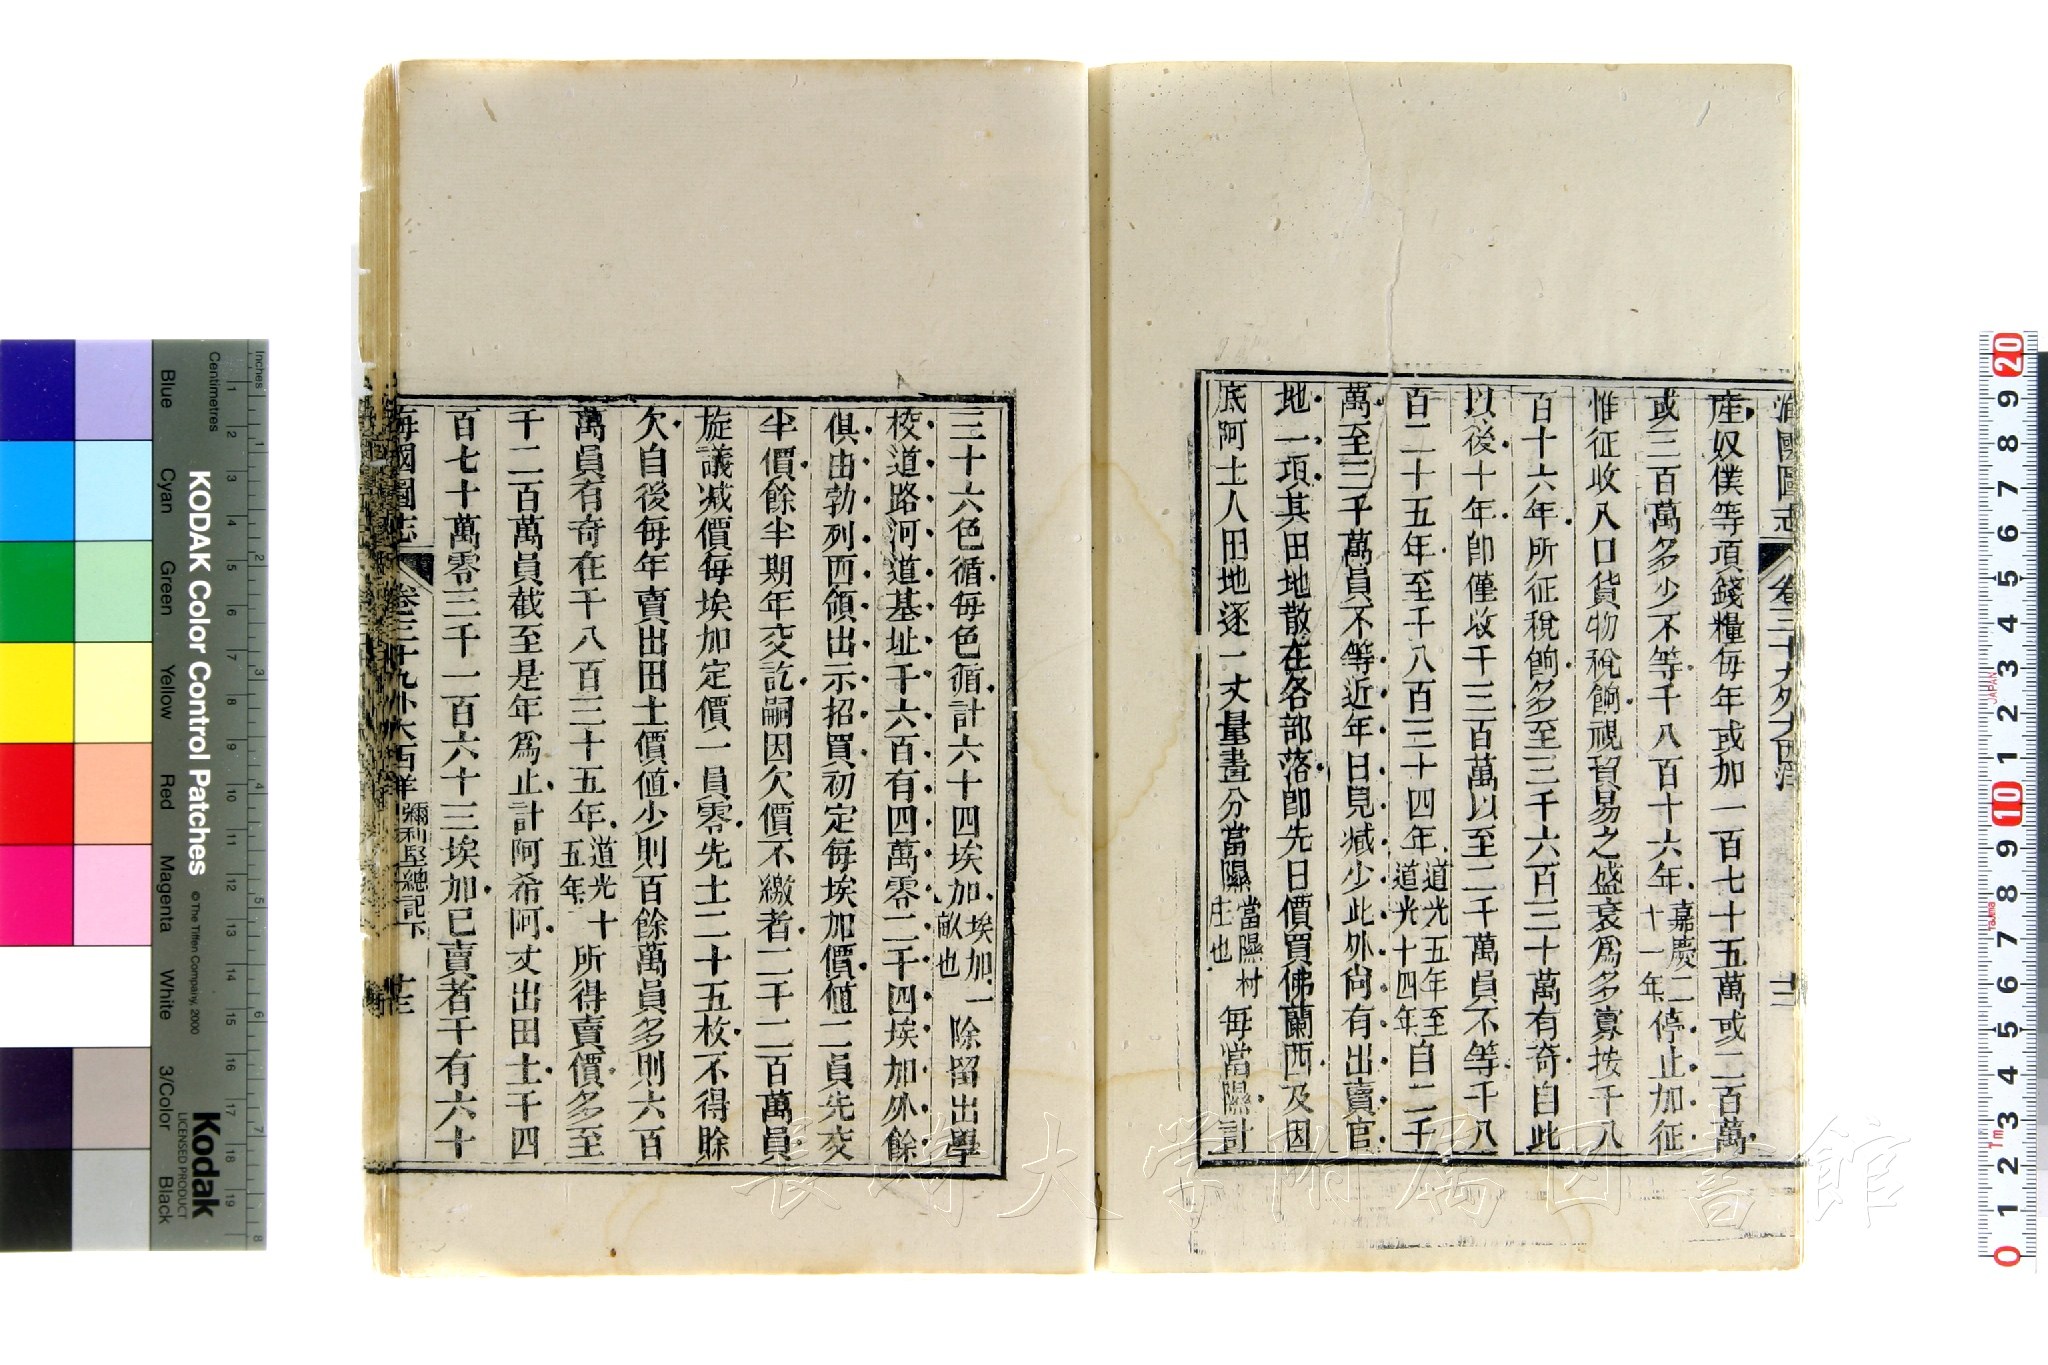 海國圖志 卷三十九外大西洋 十二
産奴僕等項錢糧每年或加一百七十五萬或二百萬
或三百萬多少不等千八百十六年嘉慶二十一年停止加征
惟征收入口貨物稅餉視貿易之盛衰爲多寡按千八
百十六年所征稅餉多至三千六百三十萬有奇自此
以後十年卽僅收千三百萬以至二千萬員不等千八
百二十五年至千八百三十四年道光五年至道光十四年自二千
萬至三千萬員不等近年日見減少此外尙有出賣官
地一項其田地散在各部落卽先日價買佛蘭西及因
底阿土人田地逐一丈量畫分當隰當隰村庄也每當隰計
三十六色循每色循計六十四埃加埃加一畝也除留出學
校道路河道基址千六百有四萬零二千四埃加外餘
俱由勃列西領出示招買初定每埃加價值二員先交
半價餘半期年交訖嗣因欠價不繳者二千二百萬員
旋議減價每埃加定價一員零先士二十五枚不得賒
欠自後每年賣出田土價值少則百餘萬員多則六百
萬員有奇在千八百三十五年道光十五年所得賣價多至
千二百萬員截至是年爲止計阿希阿丈出田土千四
百七十萬零三千一百六十三埃加已賣者千有六十
海國圖志 卷三十九外大西洋 彌利堅總記下 十三
KODAK Color Control Patches © The Tiffen Company, 2000
Kodak
LICENSED PRODUCT
Inches 1 2 3 4 5 6 7 8
Centimetres 1 2 3 4 5 6 7 8 9 10 11 12 13 14 15 16 17 18 19
Blue Cyan Green Yellow Red Magenta White 3/Color Black
0 1 2 3 4 5 6 7 8 9 10 1 2 3 4 5 6 7 8 9 20
JAPAN
長崎大学附属図書館